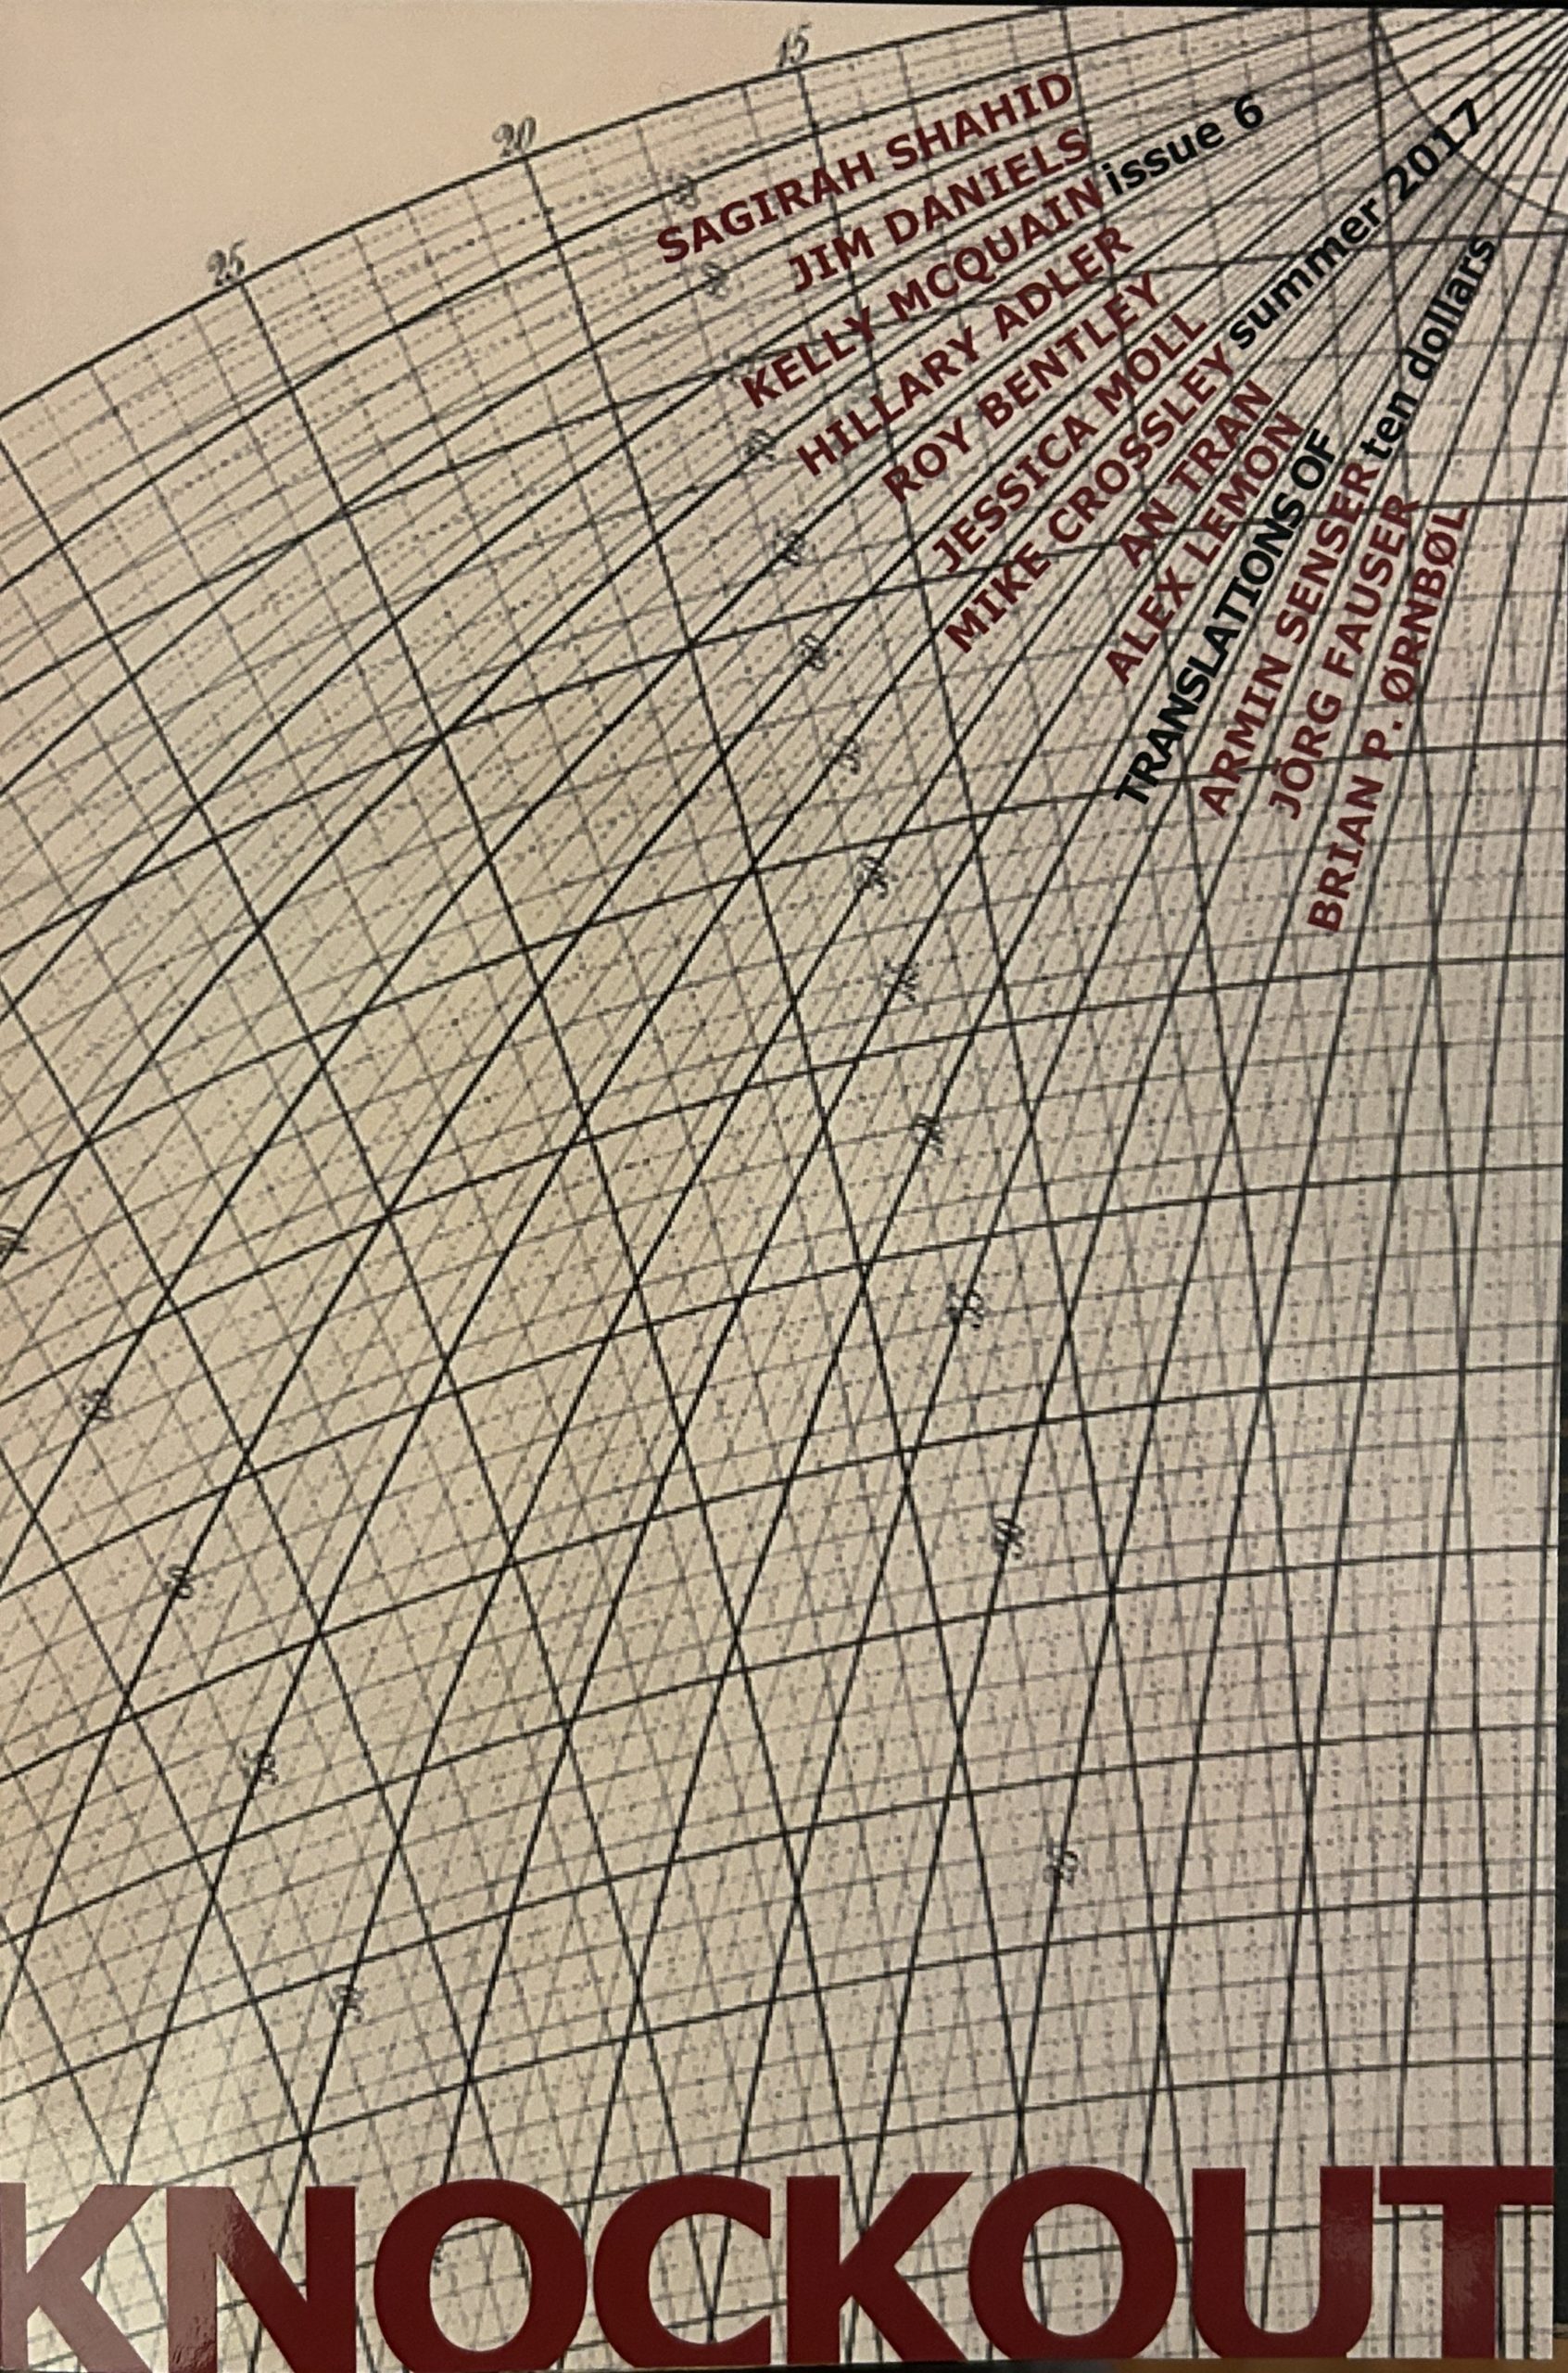 15
20
25
SAGIRAH SHAHID
JIM DANIELS
KELLY MCQUAIN issue 6
HILLARY ADLER
ROY BENTLEY
JESSICA MOLL
MIKE CROSSLEY summer 2017
AN TRAN
ALEX LEMON
TRANSLATIONS OF
ARMIN SENSER ten dollars
JÖRG FAUSER
BRIAN P. ØRNBØL
KNOCKOUT